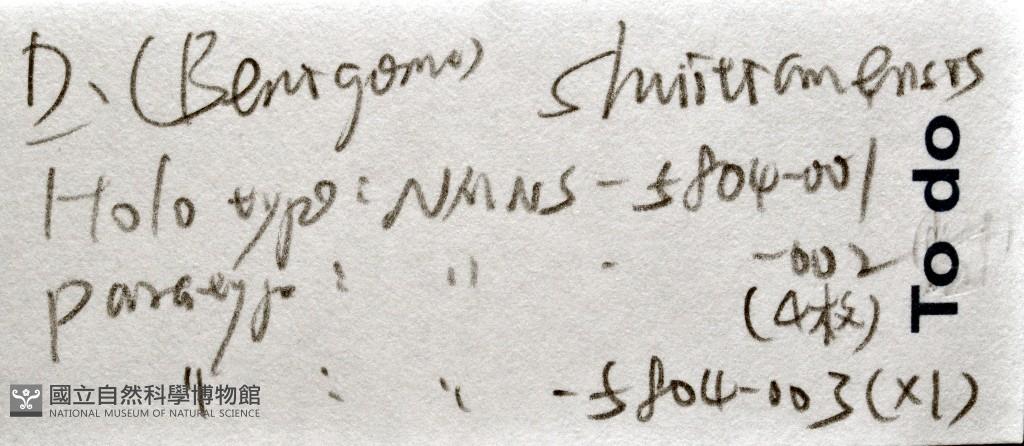 D. (Benigoma) shuiiranensis
Holotype: NMNS-5804-001
paratype: " - -002
(4枚)
" : " -5804-003(x1)
To do
國立自然科學博物館
NATIONAL MUSEUM OF NATURAL SCIENCE